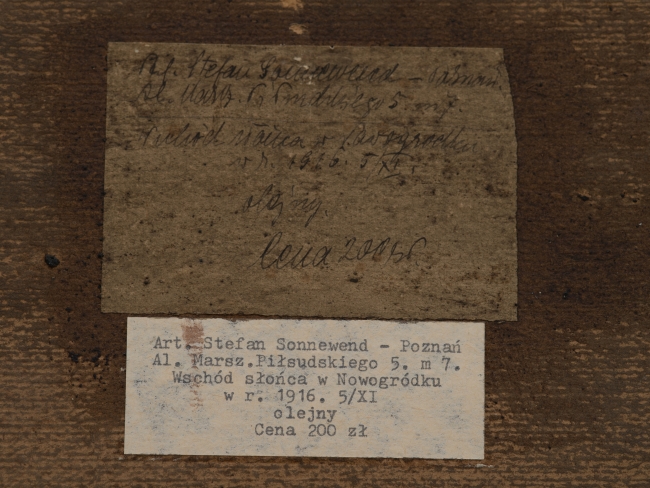 Art. Stefan Sonnewend – Poznań
Al. Marsz. Piłsudskiego 5. m 7.
Wschód słońca w Nowogródku
w r. 1916. 5/XI.
olejny.
Cena 200 zł
Art. Stefan Sonnewend - Poznań
Al. Marsz.Piłsudskiego 5. m 7.
Wschód słońca w Nowogródku
w r. 1916. 5/XI
olejny
Cena 200 zł